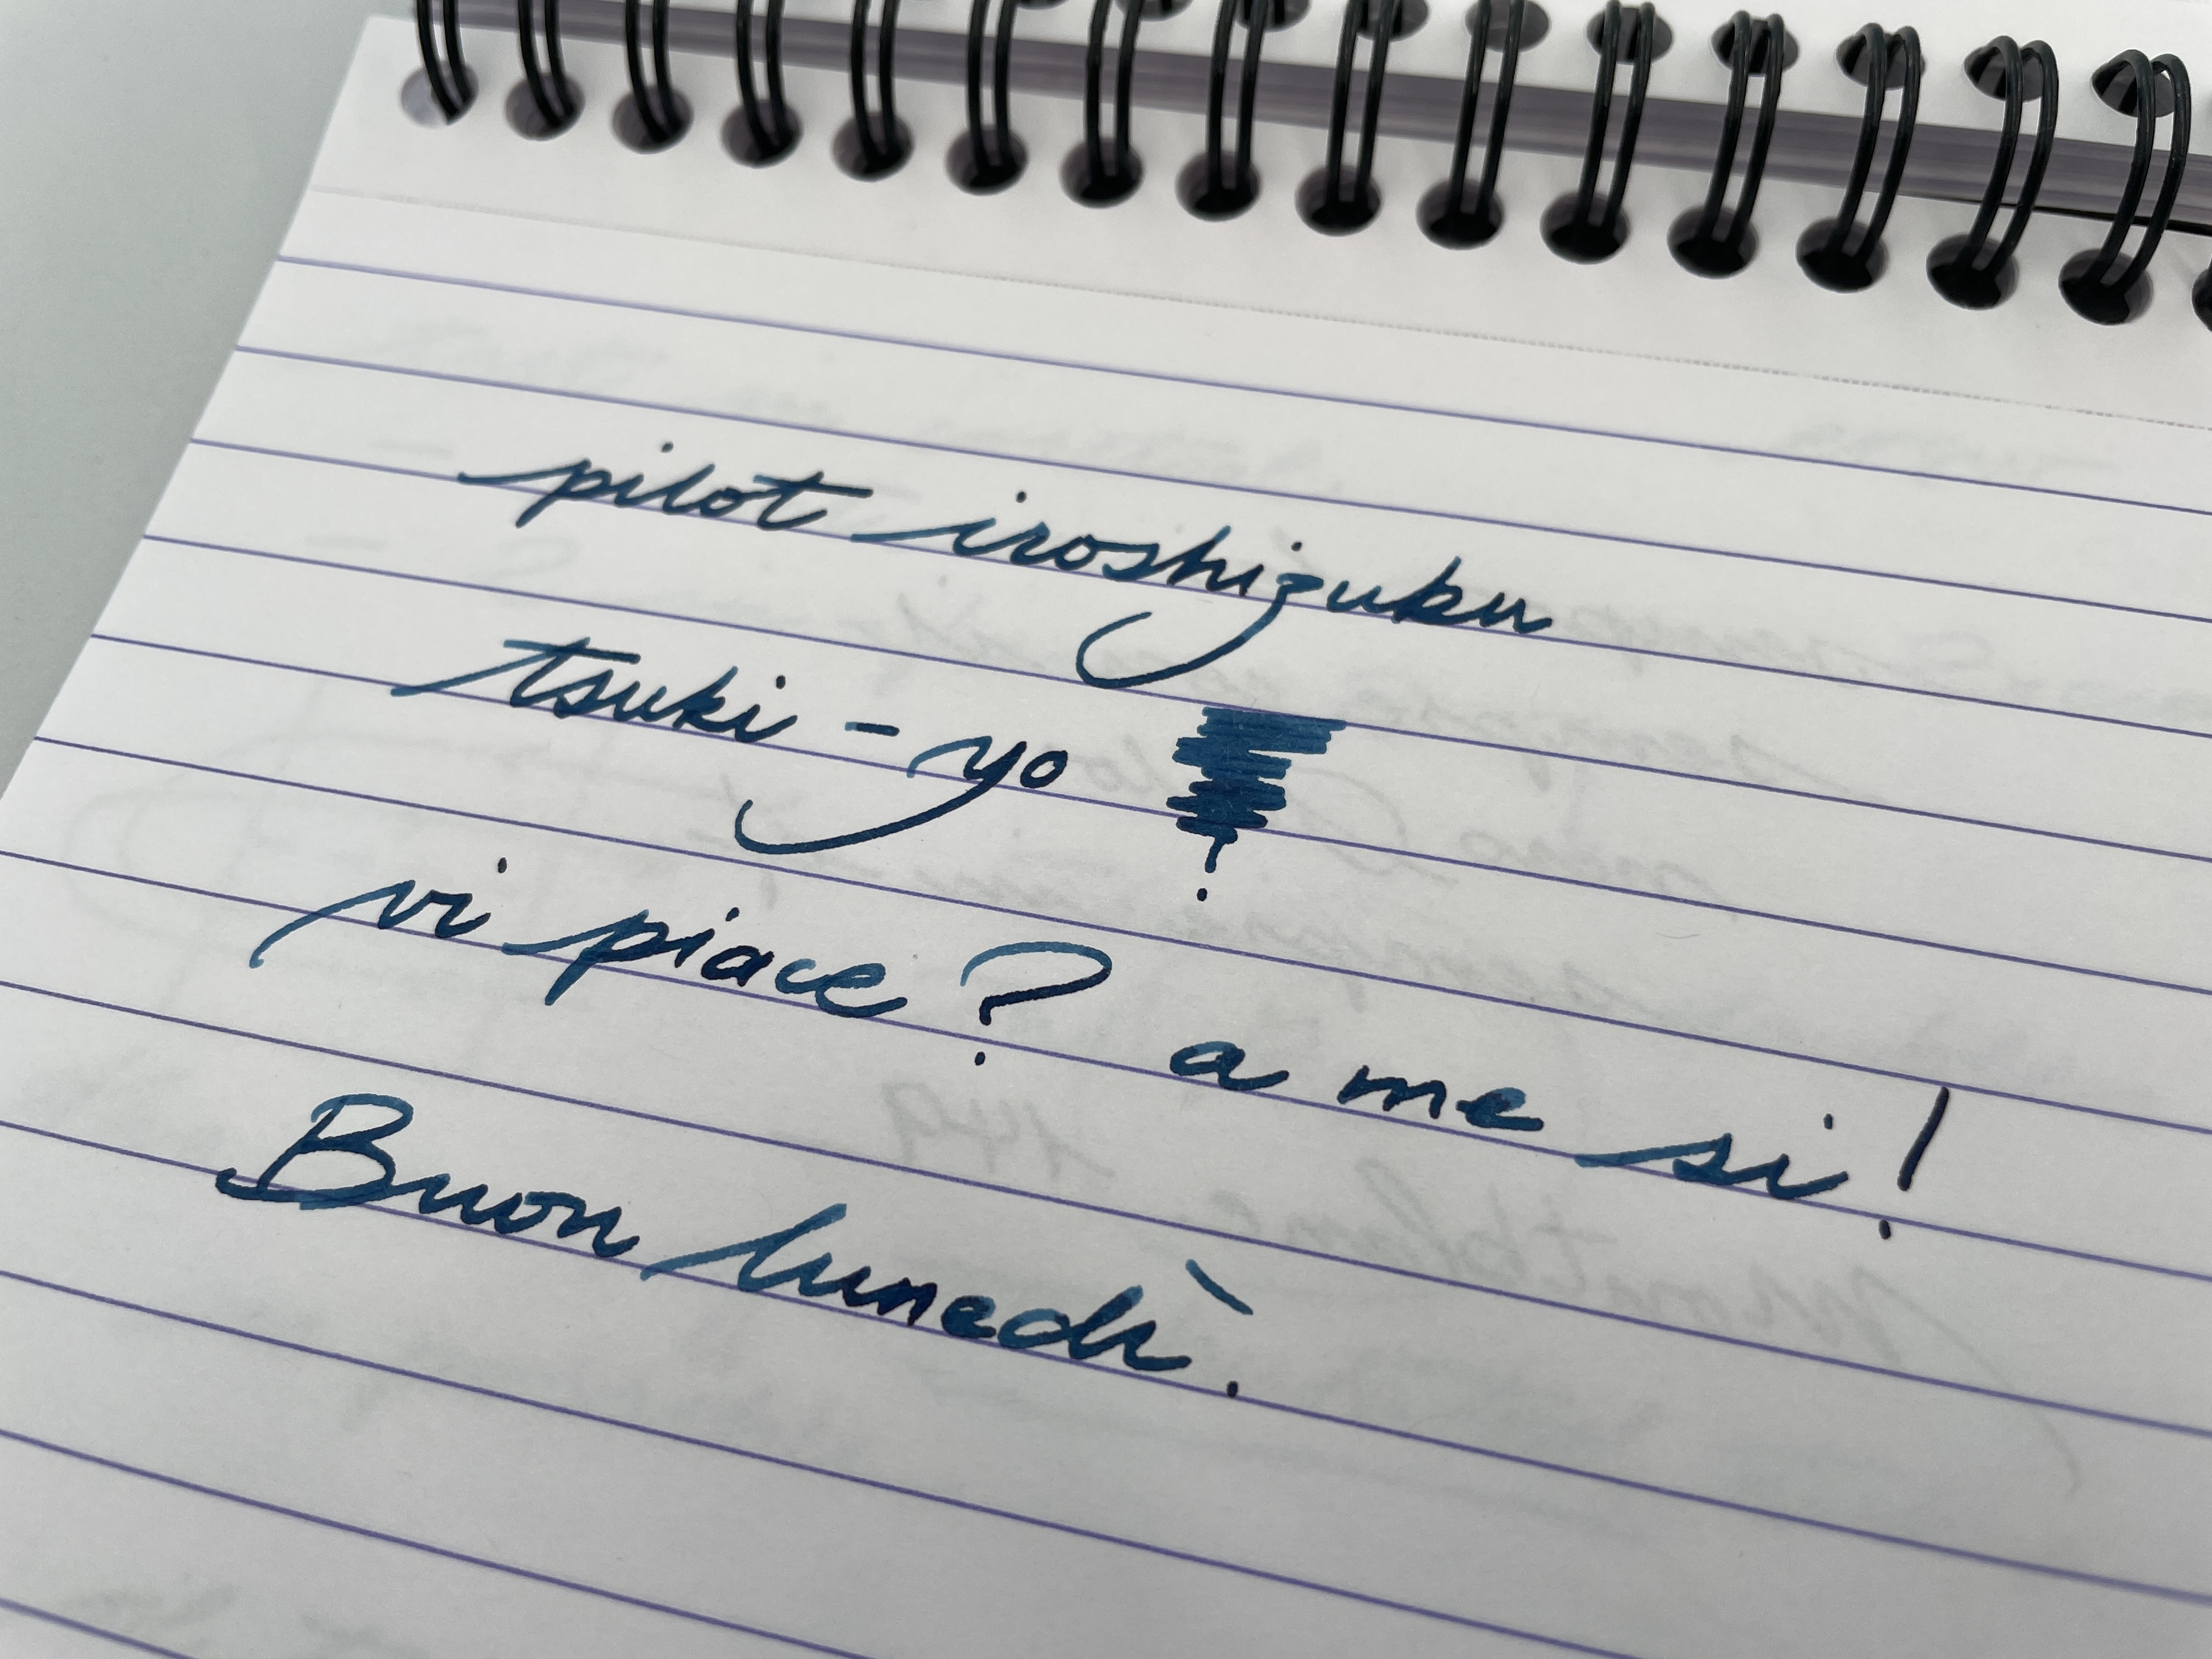 pilot iroshizuku
tsuki-yo
vi piace? a me si!
Buon lunedì.